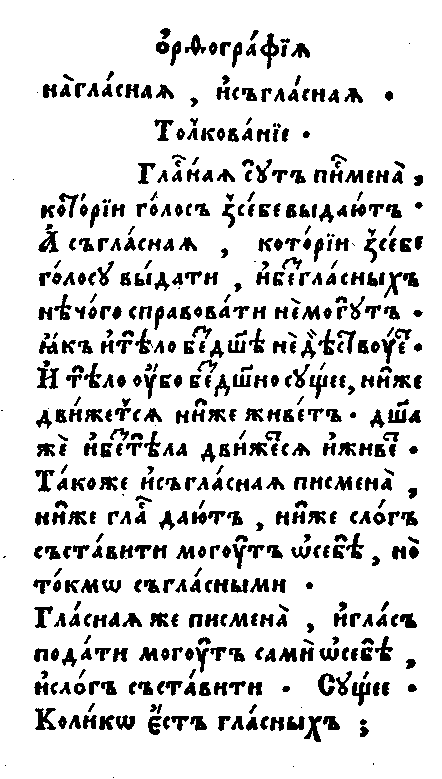 Ѻ҆рѳогра́фїѧ
нагла́снаѧ , и҆съгла́снаѧ •
Толкова́нїе •
Гла́снаѧ сꙋ́тъ пи́смена̀ ,
кото́рїи го́лосъ ѯсе́бе выдаю́тъ •
А҆ съгла́снаѧ , кото́рїи ѯсе́бе
го́лосꙋ вы́дати , и҆безгла́сныхъ
нѣчо́го справова́ти немо́гꙋтъ •
Ꙗ҆къ и҆тѣ́ло бездш҃ѣ не дѣ́йствоуе •
И҆ тѣ́ло оу҆́бо бездш҃но сꙋ́щее, ни́же
дви́жетсѧ ни́же живе́тъ • дш҃а
жѐ и҆бестѣ́ла дви́жесѧ и҆живе •
Та́коже и҆съгла́снаѧ писмена̀ ,
ни́же гла́с даю́тъ , ни́же сло́гъ
съста́вити могоу́тъ ѡ҆себѣ̀ , но̀
то́кмѡ съгла́сными •
Гла́снаѧ же писмена̀ , и҆гла́съ
пода́ти могоу́тъ самѝ ѡ҆себѣ̀ ,
и҆сло́гъ съста́вити • Сꙋ́щее •
Коли́кѡ є҆́стъ гла́сныхъ ;